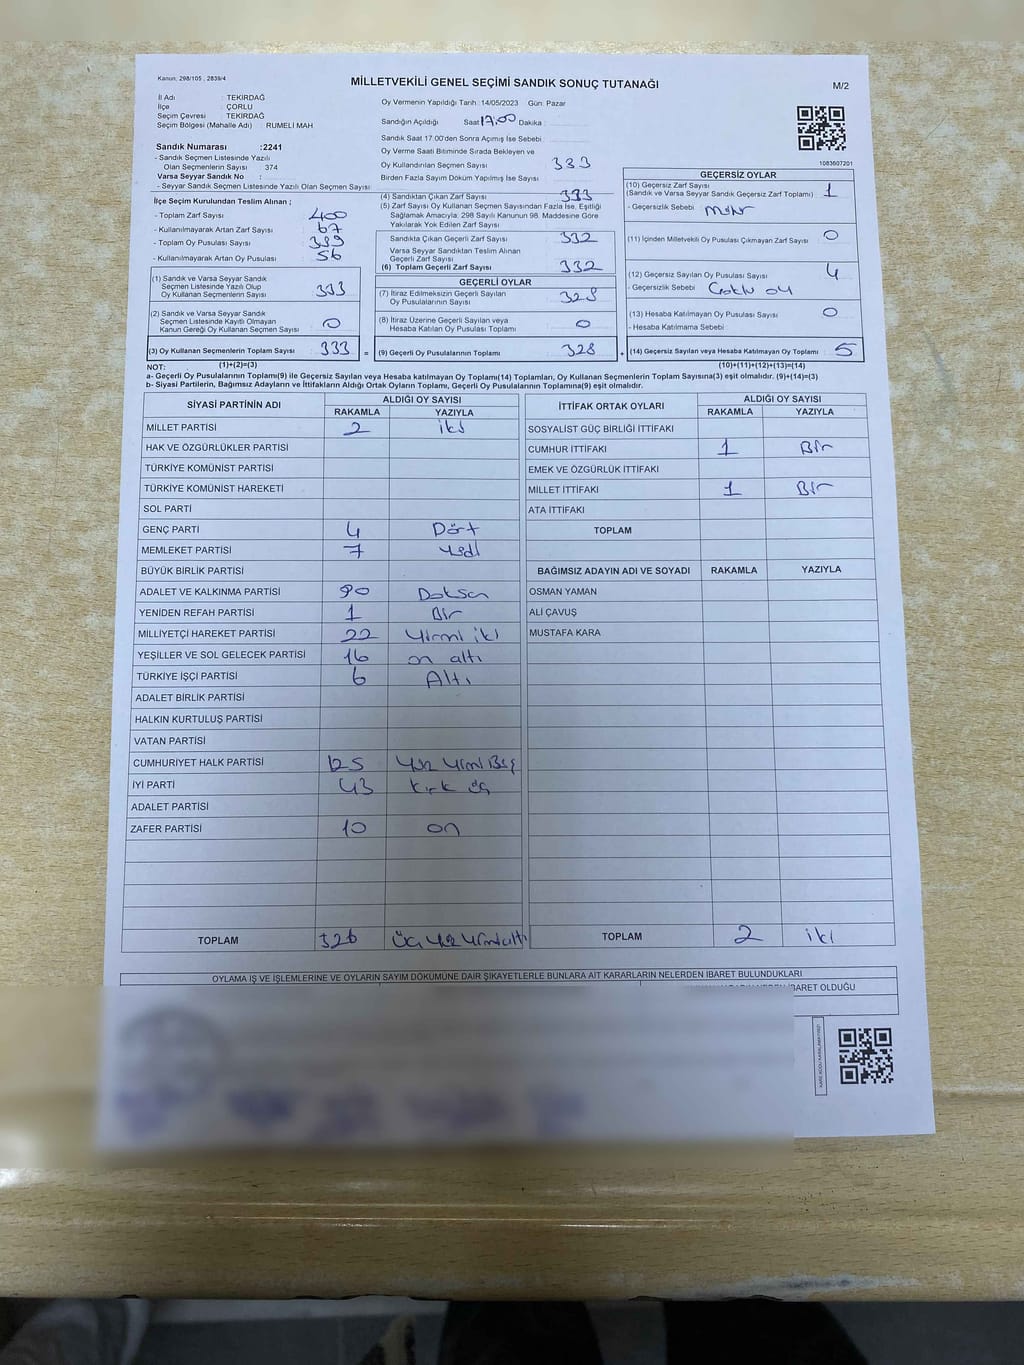 Kanun, 298/105 , 2839/4
MİLLETVEKİLİ GENEL SEÇİMİ SANDIK SONUÇ TUTANAĞI
M/2
İl Adı : TEKİRDAĞ
İlçe : ÇORLU
Seçim Çevresi : TEKİRDAĞ
Seçim Bölgesi (Mahalle Adı) : RUMELİ MAH
Sandık Numarası :2241
- Sandık Seçmen Listesinde Yazılı
Olan Seçmenlerin Sayısı : 374
Varsa Seyyar Sandık No :
- Seyyar Sandık Seçmen Listesinde Yazılı Olan Seçmen Sayısı :
Oy Vermenin Yapıldığı Tarih : 14/05/2023 Gün: Pazar
Sandığın Açıldığı Saat 17.00 Dakika :
Sandık Saat 17.00'den Sonra Açılmış İse Sebebi
Oy Verme Saati Bitiminde Sırada Bekleyen ve
Oy Kullandırılan Seçmen Sayısı 333
Birden Fazla Sayım Döküm Yapılmış İse Sayısı
1083607201
İlçe Seçim Kurulundan Teslim Alınan ;
- Toplam Zarf Sayısı : 400
- Kullanılmayarak Artan Zarf Sayısı : 67
- Toplam Oy Pusulası Sayısı : 389
- Kullanılmayarak Artan Oy Pusulası : 56
(1) Sandık ve Varsa Seyyar Sandık
Seçmen Listesinde Yazılı Olup
Oy Kullanan Seçmenlerin Sayısı 333
(2) Sandık ve Varsa Seyyar Sandık
Seçmen Listesinde Kayıtlı Olmayan
Kanun Gereği Oy Kullanan Seçmen Sayısı 0
(3) Oy Kullanan Seçmenlerin Toplam Sayısı 333 =
(1)+(2)=(3)
(4) Sandıktan Çıkan Zarf Sayısı 333
(5) Zarf Sayısı Oy Kullanan Seçmen Sayısından Fazla İse, Eşitliği
Sağlamak Amacıyla; 298 Sayılı Kanunun 98. Maddesine Göre
Yakılarak Yok Edilen Zarf Sayısı
Sandıkta Çıkan Geçerli Zarf Sayısı 332
Varsa Seyyar Sandıktan Teslim Alınan
Geçerli Zarf Sayısı
(6) Toplam Geçerli Zarf Sayısı 332
GEÇERLİ OYLAR
(7) İtiraz Edilmeksizin Geçerli Sayılan
Oy Pusulalarının Sayısı 328
(8) İtiraz Üzerine Geçerli Sayılan veya
Hesaba Katılan Oy Pusulası Toplamı 0
(9) Geçerli Oy Pusulalarının Toplamı 328 +
GEÇERSİZ OYLAR
(10) Geçersiz Zarf Sayısı 1
(Sandık ve Varsa Seyyar Sandık Geçersiz Zarf Toplamı)
- Geçersizlik Sebebi : mühür
(11) İçinden Milletvekili Oy Pusulası Çıkmayan Zarf Sayısı 0
(12) Geçersiz Sayılan Oy Pusulası Sayısı 4
- Geçersizlik Sebebi : Çoklu oy
(13) Hesaba Katılmayan Oy Pusulası Sayısı 0
- Hesaba Katılmama Sebebi :
(14) Geçersiz Sayılan veya Hesaba Katılmayan Oy Toplamı 5
(10)+(11)+(12)+(13)=(14)
NOT:
a- Geçerli Oy Pusulalarının Toplamı(9) ile Geçersiz Sayılan veya Hesaba Katılmayan Oy Toplamı(14) Toplamları, Oy Kullanan Seçmenlerin Toplam Sayısına(3) eşit olmalıdır. (9)+(14)=(3)
b- Siyasi Partilerin, Bağımsız Adayların ve İttifakların Aldığı Ortak Oyların Toplamı, Geçerli Oy Pusulalarının Toplamına(9) eşit olmalıdır.
SİYASİ PARTİNİN ADI ALDIĞI OY SAYISI
RAKAMLA YAZIYLA
MİLLET PARTİSİ 2 iki
HAK VE ÖZGÜRLÜKLER PARTİSİ
TÜRKİYE KOMÜNİST PARTİSİ
TÜRKİYE KOMÜNİST HAREKETİ
SOL PARTİ
GENÇ PARTİ 4 Dört
MEMLEKET PARTİSİ 7 Yedi
BÜYÜK BİRLİK PARTİSİ
ADALET VE KALKINMA PARTİSİ 90 Doksan
YENİDEN REFAH PARTİSİ 1 Bir
MİLLİYETÇİ HAREKET PARTİSİ 22 Yirmi iki
YEŞİLLER VE SOL GELECEK PARTİSİ 16 on altı
TÜRKİYE İŞÇİ PARTİSİ 6 Altı
ADALET BİRLİK PARTİSİ
HALKIN KURTULUŞ PARTİSİ
VATAN PARTİSİ
CUMHURİYET HALK PARTİSİ 125 Yüz Yirmi Beş
İYİ PARTİ 43 Kırk üç
ADALET PARTİSİ
ZAFER PARTİSİ 10 on
TOPLAM 326 Üç yüz yirmi altı
İTTİFAK ORTAK OYLARI ALDIĞI OY SAYISI
RAKAMLA YAZIYLA
SOSYALİST GÜÇ BİRLİĞİ İTTİFAKI
CUMHUR İTTİFAKI 1 Bir
EMEK VE ÖZGÜRLÜK İTTİFAKI
MİLLET İTTİFAKI 1 Bir
ATA İTTİFAKI
TOPLAM
BAĞIMSIZ ADAYIN ADI VE SOYADI RAKAMLA YAZIYLA
OSMAN YAMAN
ALİ ÇAVUŞ
MUSTAFA KARA
TOPLAM 2 iki
OYLAMA İŞ VE İŞLEMLERİNE VE OYLARIN SAYIM DÖKÜMÜNE DAİR ŞİKAYETLERLE BUNLARA AİT KARARLARIN NELERDEN İBARET BULUNDUKLARI
İBARET OLDUĞU